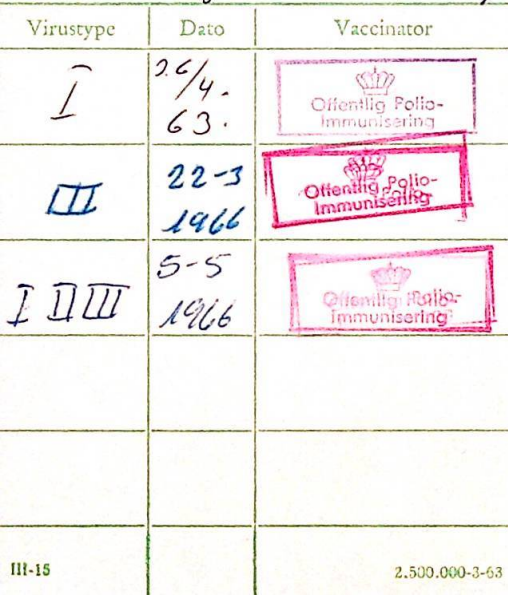 Virustype Dato Vaccinator
I 26/4. 63. Offentlig Polio-
Immunisering
III 22-3 1966 Offentlig Polio-
Immunisering
I II III 5-5 1966 Offentlig Polio-
Immunisering
III-15 2.500.000-3-63